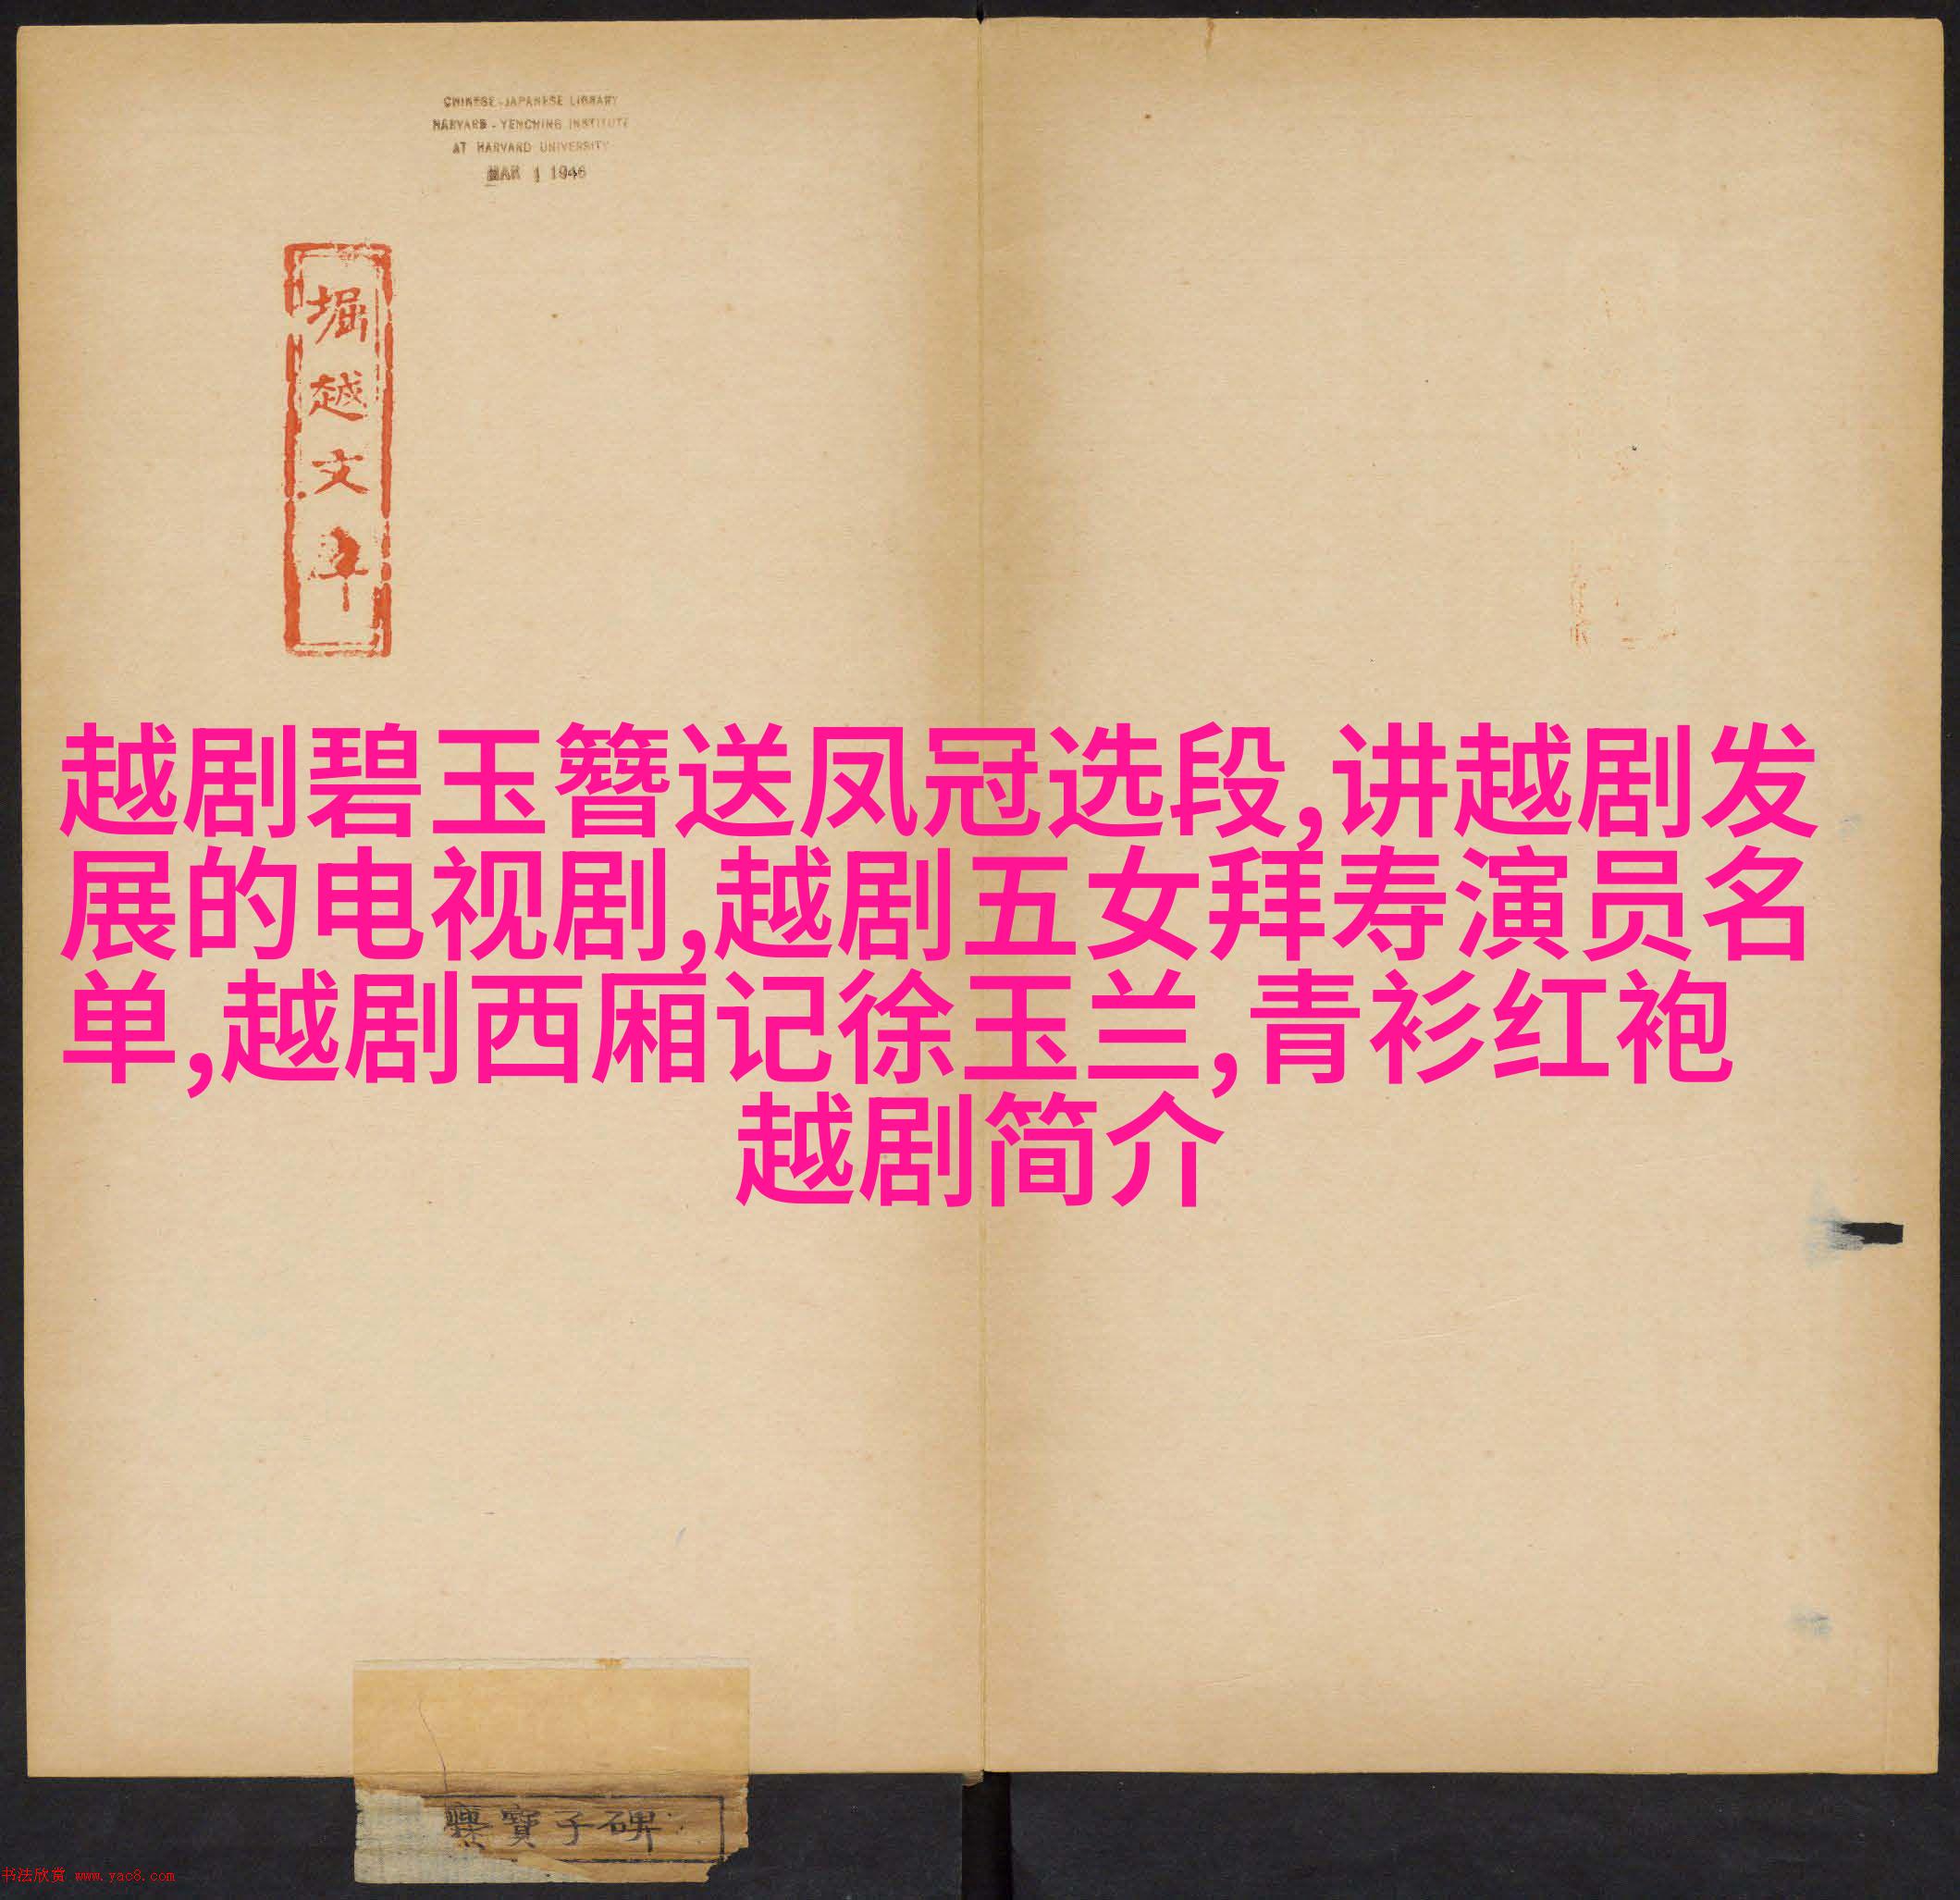 CHINESE-JAPANESE LIBRARY
HARVARD-YENCHING INSTITUTE
AT HARVARD UNIVERSITY
MAR 1 1946
堀越文庫
越剧碧玉簪送凤冠选段,讲越剧发
展的电视剧,越剧五女拜寿演员名
单,越剧西厢记徐玉兰,青衫红袍
越剧简介
爨寶子碑
书法欣赏 www.yac8.com